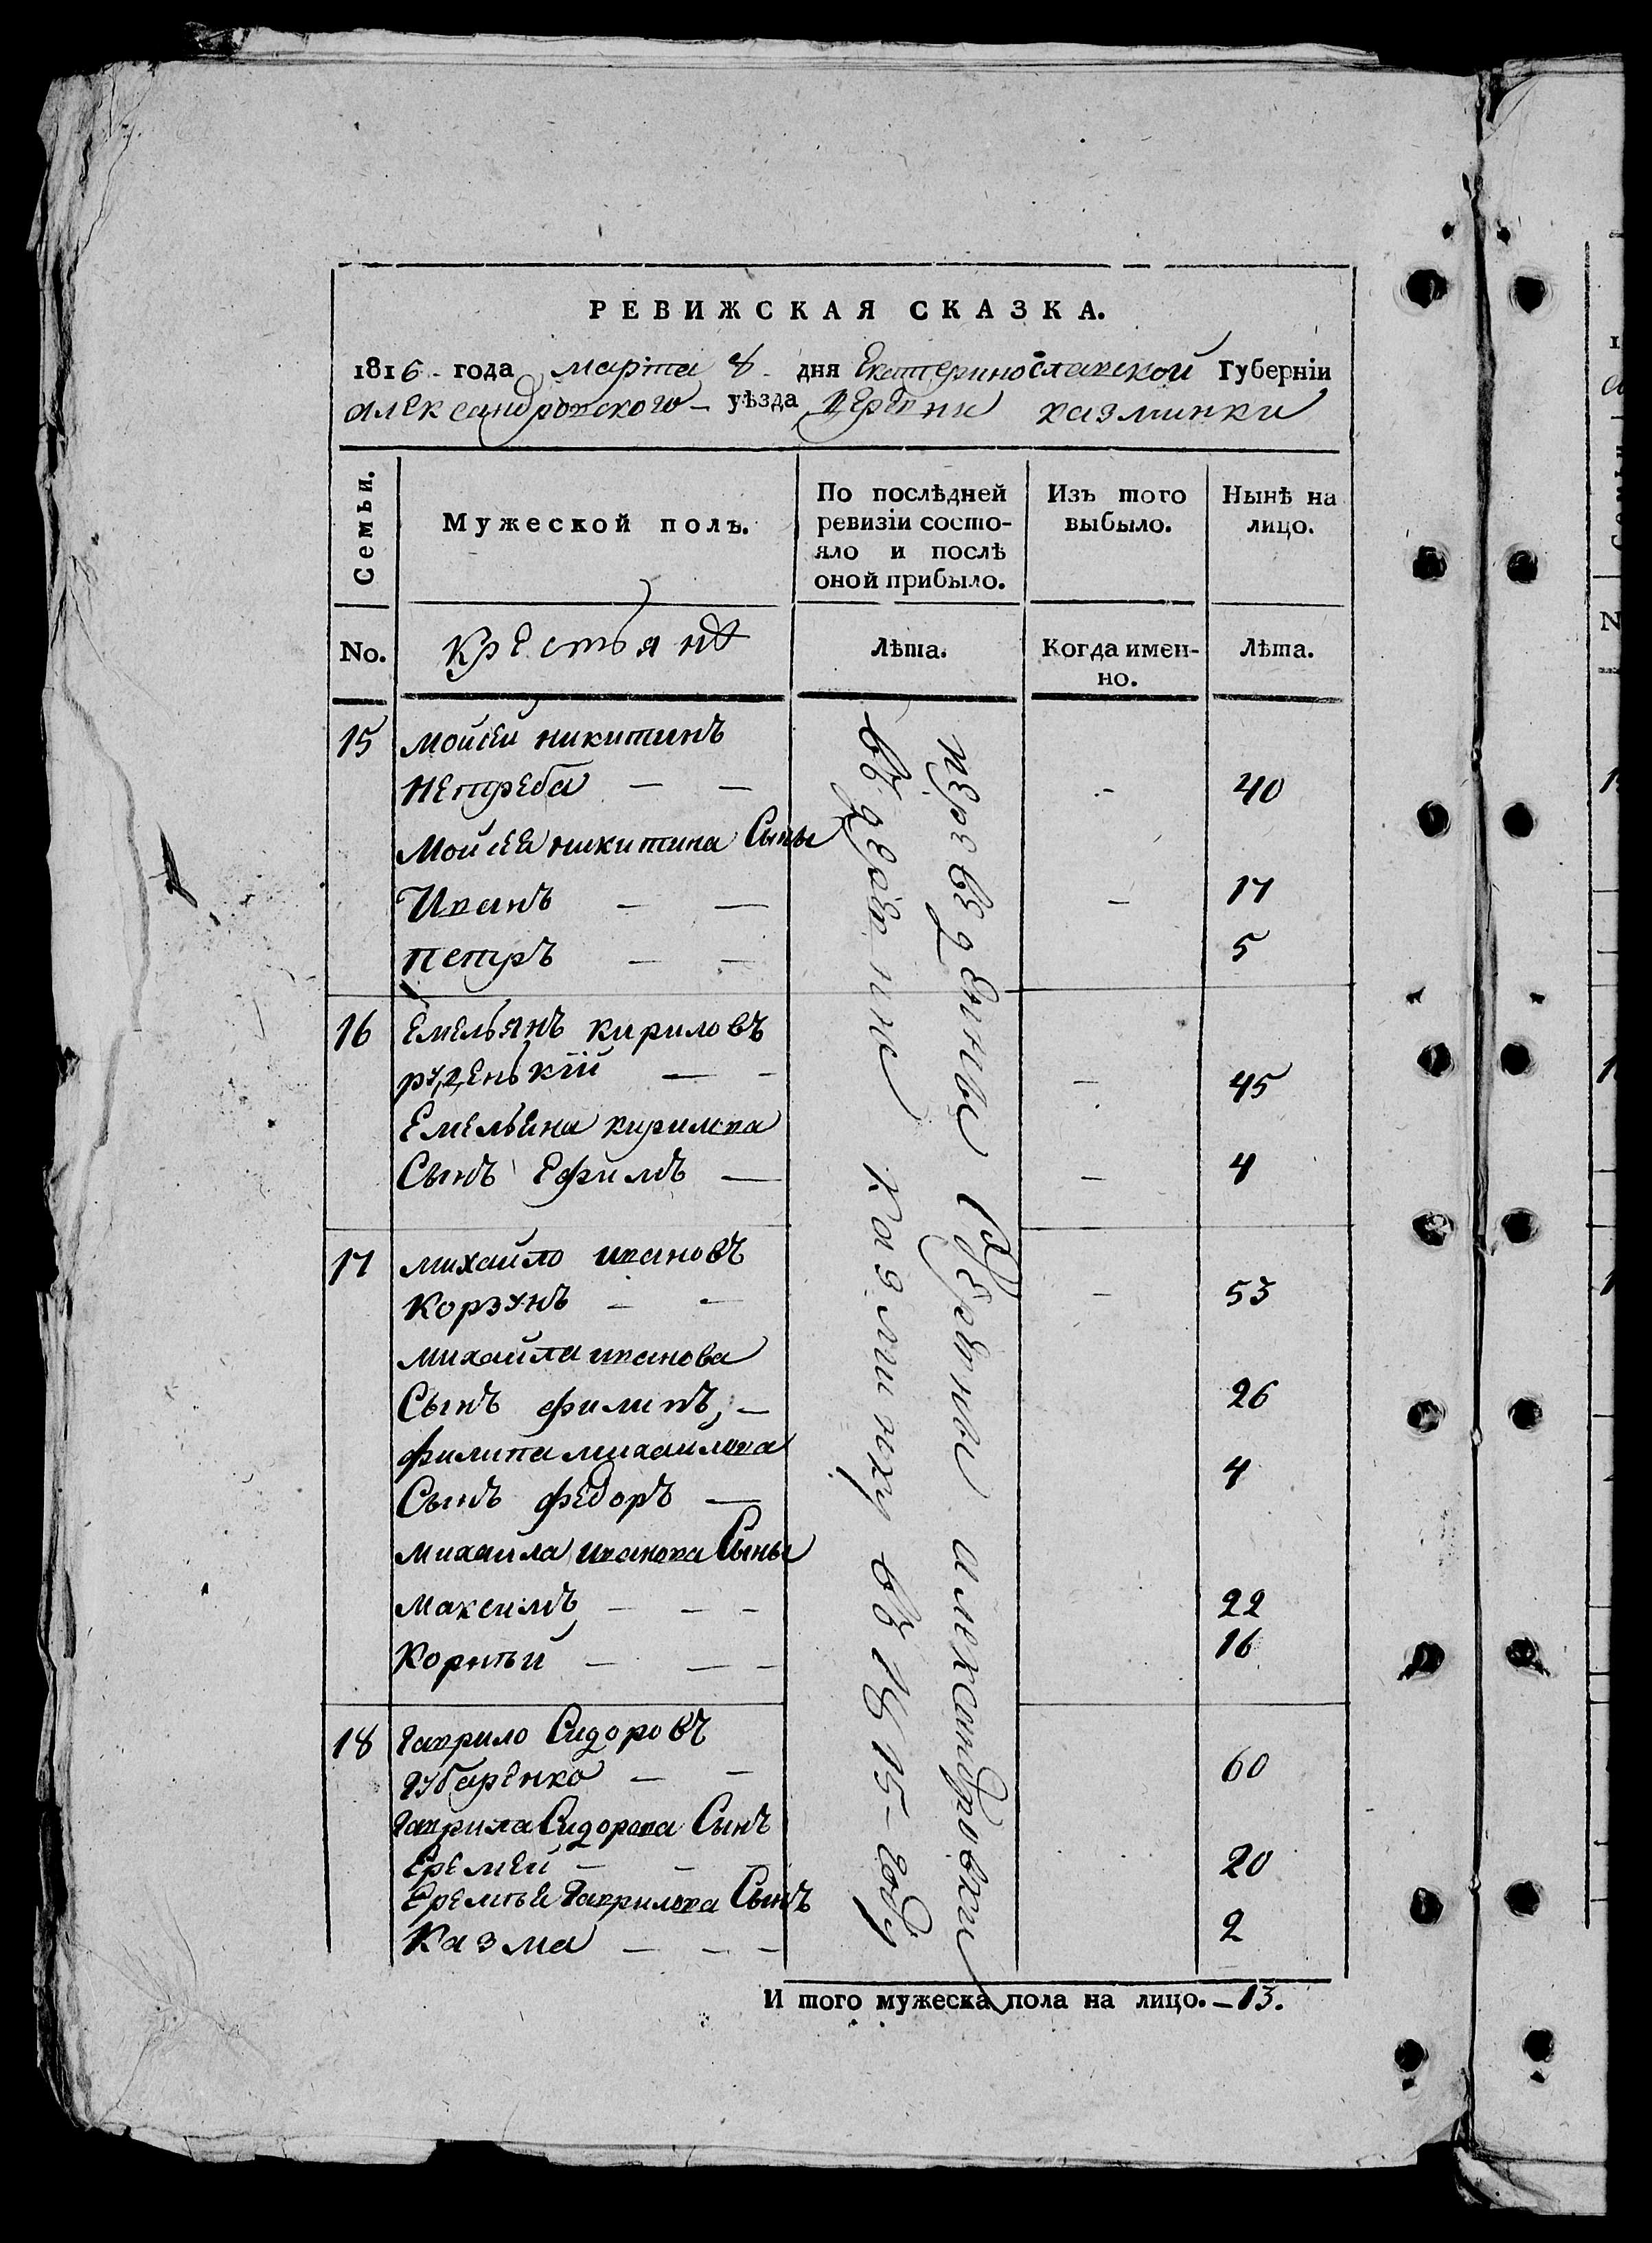 РЕВИЖСКАЯ СКАЗКА.
1816 года марта 8 дня Екатеринославской Губернїи
александровского уѣзда деревни казминки
Семьи.
Мужеской полъ.
По послѣдней ревизїи состо-
яло и послѣ
оной прибыло.
Изъ того
выбыло.
Нынѣ на
лицо.
No.
крестьянѣ
Лѣта.
Когда имен-
но.
Лѣта.
15 Мойсей никитинъ
Непреба — — 40
Мойсея никитина Сыны
Иванъ — — 17
Петръ — — 5
16 Емельянъ кириловъ
руденькїй — — 45
Емельяна кирилова
Сынъ Ефимъ — 4
17 михайло ивановъ
Корзунъ — — 53
михайла иванова
Сынъ филипъ, — 26
филипа михаилова
Сынъ федоръ — 4
михаила иванова Сыны
Максимъ — — — 22
Корнѣй — — — 16
18 Гаврило Сидоровъ
Губаренко — — 60
Гаврила Сидорова Сынъ
Еремей — — — 20
Еремѣя Гаврилова Сынъ
Казма — — — 2
переведены из деревни александровки
въ деревню Казминку въ 1815 году
И того мужеска пола на лицо. — 13.